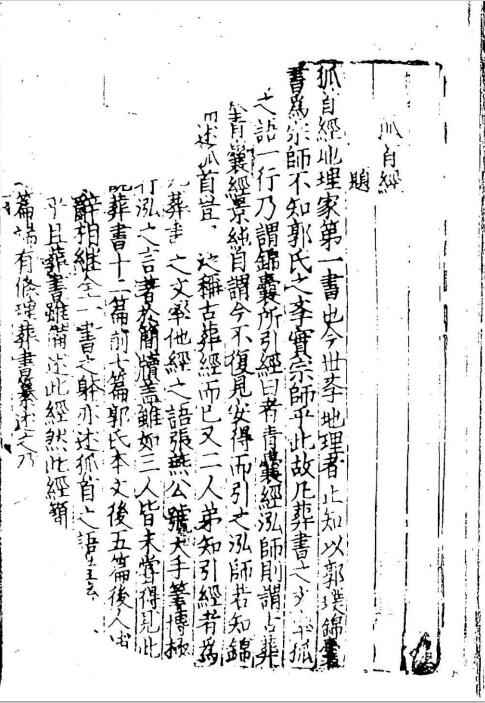 狐首經
題
狐首經地理家第一書也今世李地理者止知以郭璞錦囊
書為宗師不知郭氏之李實宗師乎此故凡葬書之少
之語一行乃謂錦囊所引經曰者青囊經泓師則謂古葬
青囊經景純自謂今不復見安得而引之泓師若知錦
述狐首豈
稱古葬經而已又二人弟知引經者為
葬書之文率他經之語張燕公號大手筆博極
行泓之言著於簡牘盖雖如三人皆未嘗得見此
葬書十二篇前七篇郭氏本文後五篇後人
辭相維全一書之躰亦述狐首之語
且葬書雖備述此經然此經
篇端有條理葬書纂述之